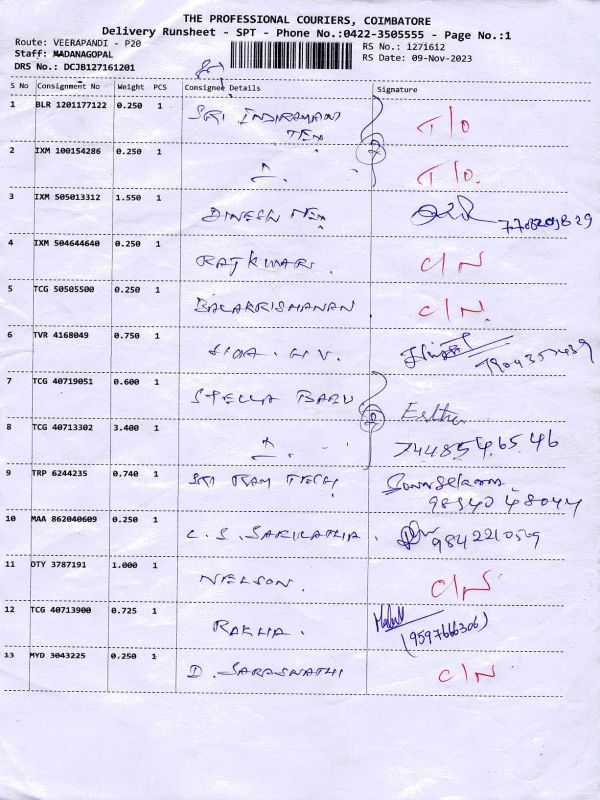 THE PROFESSIONAL COURIERS, COIMBATORE
Delivery Runsheet - SPT - Phone No.:0422-3505555 - Page No.:1
Route: VEERAPANDI - P20
RS No.: 1271612
Staff: MADANAGOPAL
RS Date: 09-Nov-2023
DRS No.: DCJB127161201
S No Consignment No Weight PCS Consignee Details Signature
1 BLR 1201177122 0.250 1 SRI T/O
TEX
2 IXM 100154286 0.250 1 T/O.
3 IXM 505013312 1.550 1 DINESH TEX
4 IXM 504644640 0.250 1 RAJKUMAR. C/N
5 TCG 50505500 0.250 1 BALAKRISHANAN C/N.
6 TVR 4168049 0.750 1
7 TCG 40719051 0.600 1 STELLA BABU Esther
8 TCG 40713302 3.400 1 744854.65.46
9 TRP 6244235 0.740 1 SRI RAM TECH
98940 48044
10 MAA 862040609 0.250 1 C.S. 9842210509
11 OTY 3787191 1.000 1 NELSON. C/N
12 TCG 40713900 0.725 1 RAKHA. (9597666306)
13 MYD 3043225 0.250 1 D. SARASWATHI C/N